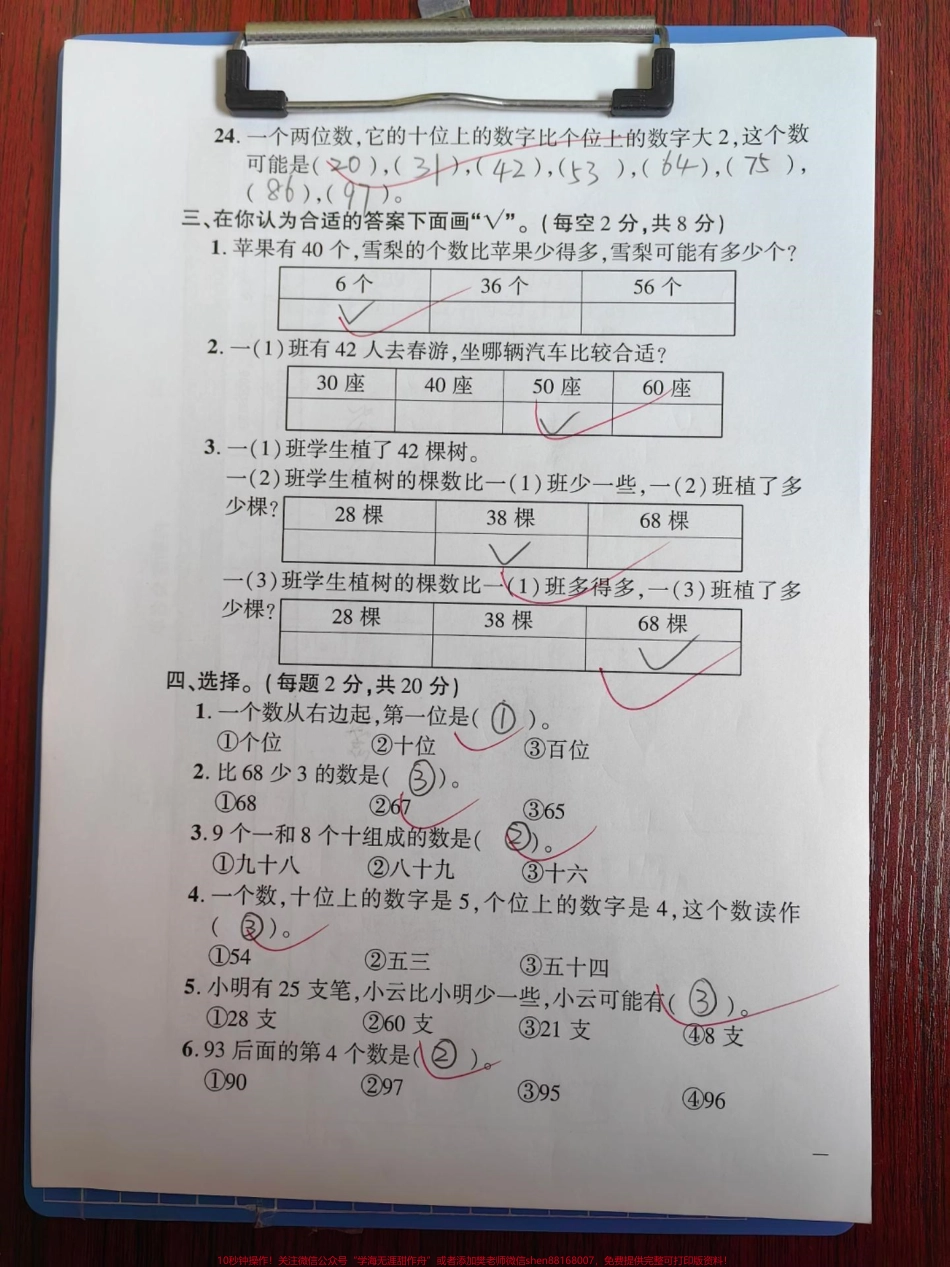 24. 一个两位数,它的十位上的数字比个位上的数字大2,这个数
可能是(20),(31),(42),(53),(64),(75),
(86),(97)。
三、在你认为合适的答案下面画“√”。(每空2分,共8分)
1. 苹果有40个,雪梨的个数比苹果少得多,雪梨可能有多少个?
6个 36个 56个
✓
2. 一(1)班有42人去春游,坐哪辆汽车比较合适?
30座 40座 50座 60座
✓
3. 一(1)班学生植了42棵树。
一(2)班学生植树的棵数比一(1)班少一些,一(2)班植了多
少棵?
28棵 38棵 68棵
✓
一(3)班学生植树的棵数比一(1)班多得多,一(3)班植了多
少棵?
28棵 38棵 68棵
✓
四、选择。(每题2分,共20分)
1. 一个数从右边起,第一位是(①)。
①个位 ②十位 ③百位
2. 比68少3的数是(③)。
①68 ②67 ③65
3. 9个一和8个十组成的数是(②)。
①九十八 ②八十九 ③十六
4. 一个数,十位上的数字是5,个位上的数字是4,这个数读作
(③)。
①54 ②五三 ③五十四
5. 小明有25支笔,小云比小明少一些,小云可能有(③)。
①28支 ②60支 ③21支 ④8支
6. 93后面的第4个数是(②)。
①90 ②97 ③95 ④96
10秒钟操作!关注微信公众号“学海无涯甜作舟”或者添加樊老师微信shen88168007,免费提供完整可打印版资料!